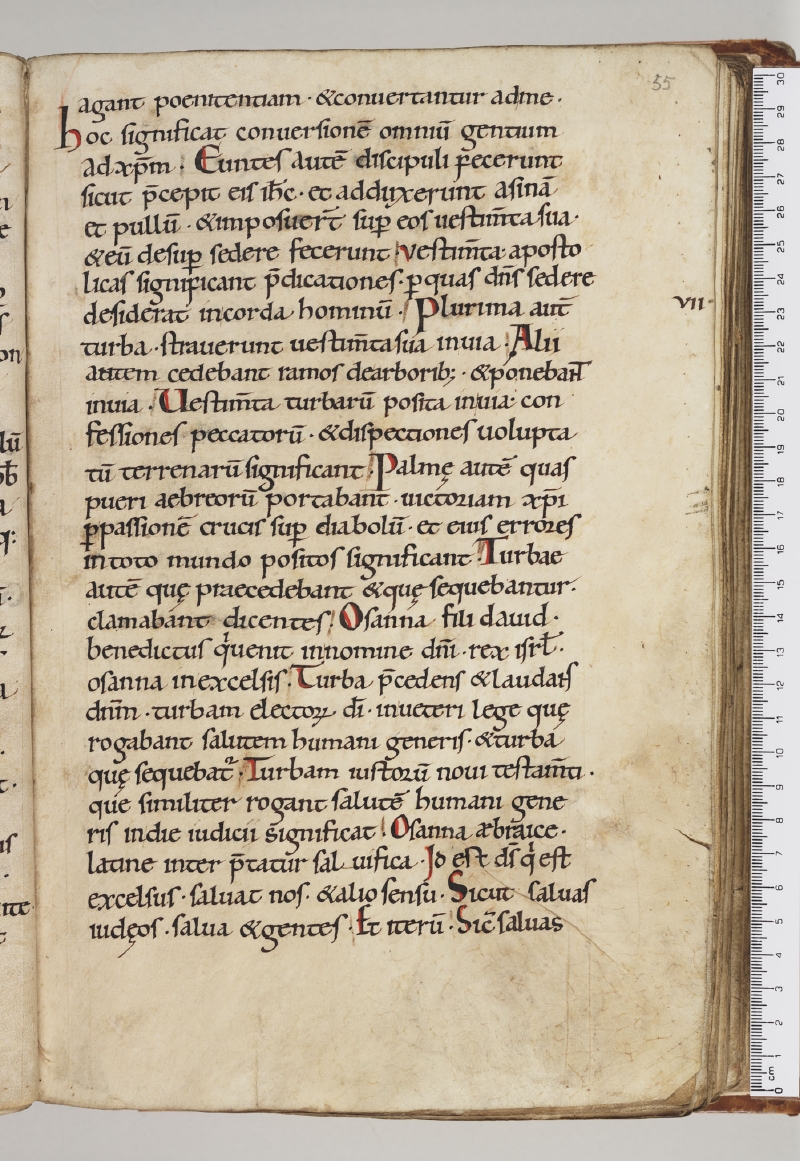 55
agant poenitentiam · &conuertantur adme ·
hoc significat conuersionē omniū gentium
adxp̄m · Euntes autē discipuli p̄ecerunt
sicut p̄cepit eis ih̄c · et adduxerunt asinā
et pullū · &imposuer̄t sup̱ eos uestim̄ta sua ·
&eū desup̱ sedere fecerunt · vestim̄ta aposto
licas significant p̄dicationes · ꝑquas dn̄s sedere
desiderat incorda hominū · Plurima aut̄
vii ·
turba · strauerunt uestim̄ta sua inuia · Alii
autem cedebant ramos dearborib; · &ponebant
inuia · Uestim̄ta turbarū posita inuia con
fessiones peccatorū · &dispectiones uolupta
tū terrenarū significant · Palmę autē quas
pueri aebreorū portabant · uictoriam xp̄i
ꝑpassionē crucis sup̱ diabolū · et eius errores
intoto mundo positos significant · Turbae
autē quę praecedebant &quę sequebantur ·
clamabant dicentes · Osanna fili dauid ·
benedictus qͥuenit innomine dn̄i · rex isrł ·
osanna inexcelsis · Turba p̄cedens &laudans
dn̄m · turbam electoꝝ dī · inueteri lege quę
rogabant salutem humani generis · &turba
quę sequebat᷑ · Turbam iustorū noui testam̄ti ·
que similiter rogant salutē humani gene
ris indie iudicii significat · Osanna æbraice ·
latine inter p̄tatur saluifica · Id est dsͥ qͥ est
excelsus · saluat nos · &alio sensu · Sicut saluas
iudęos · salua &gentes · Et iterū · Sic̄ saluas
30
29
28
27
26
25
24
23
22
21
20
19
18
17
16
15
14
13
12
11
10
9
8
7
6
5
4
3
2
1
cm 0